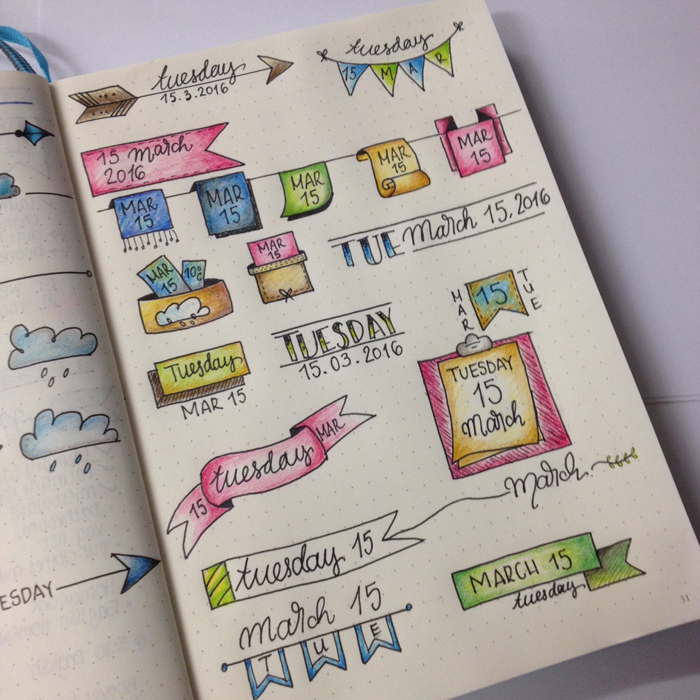 tuesday
15.3.2016
tuesday
15 MAR
15 march
2016
MAR
15
MAR
15
MAR
15
MAR
15
MAR
15
MAR
15
10°C
MAR
15
TUE March 15, 2016
MAR 15 TUE
TUESDAY
15.03.2016
Tuesday
MAR 15
TUESDAY
15
march
15 tuesday MAR
march
tuesday 15
MARCH 15
tuesday
march 15
TUE
ESDAY
11